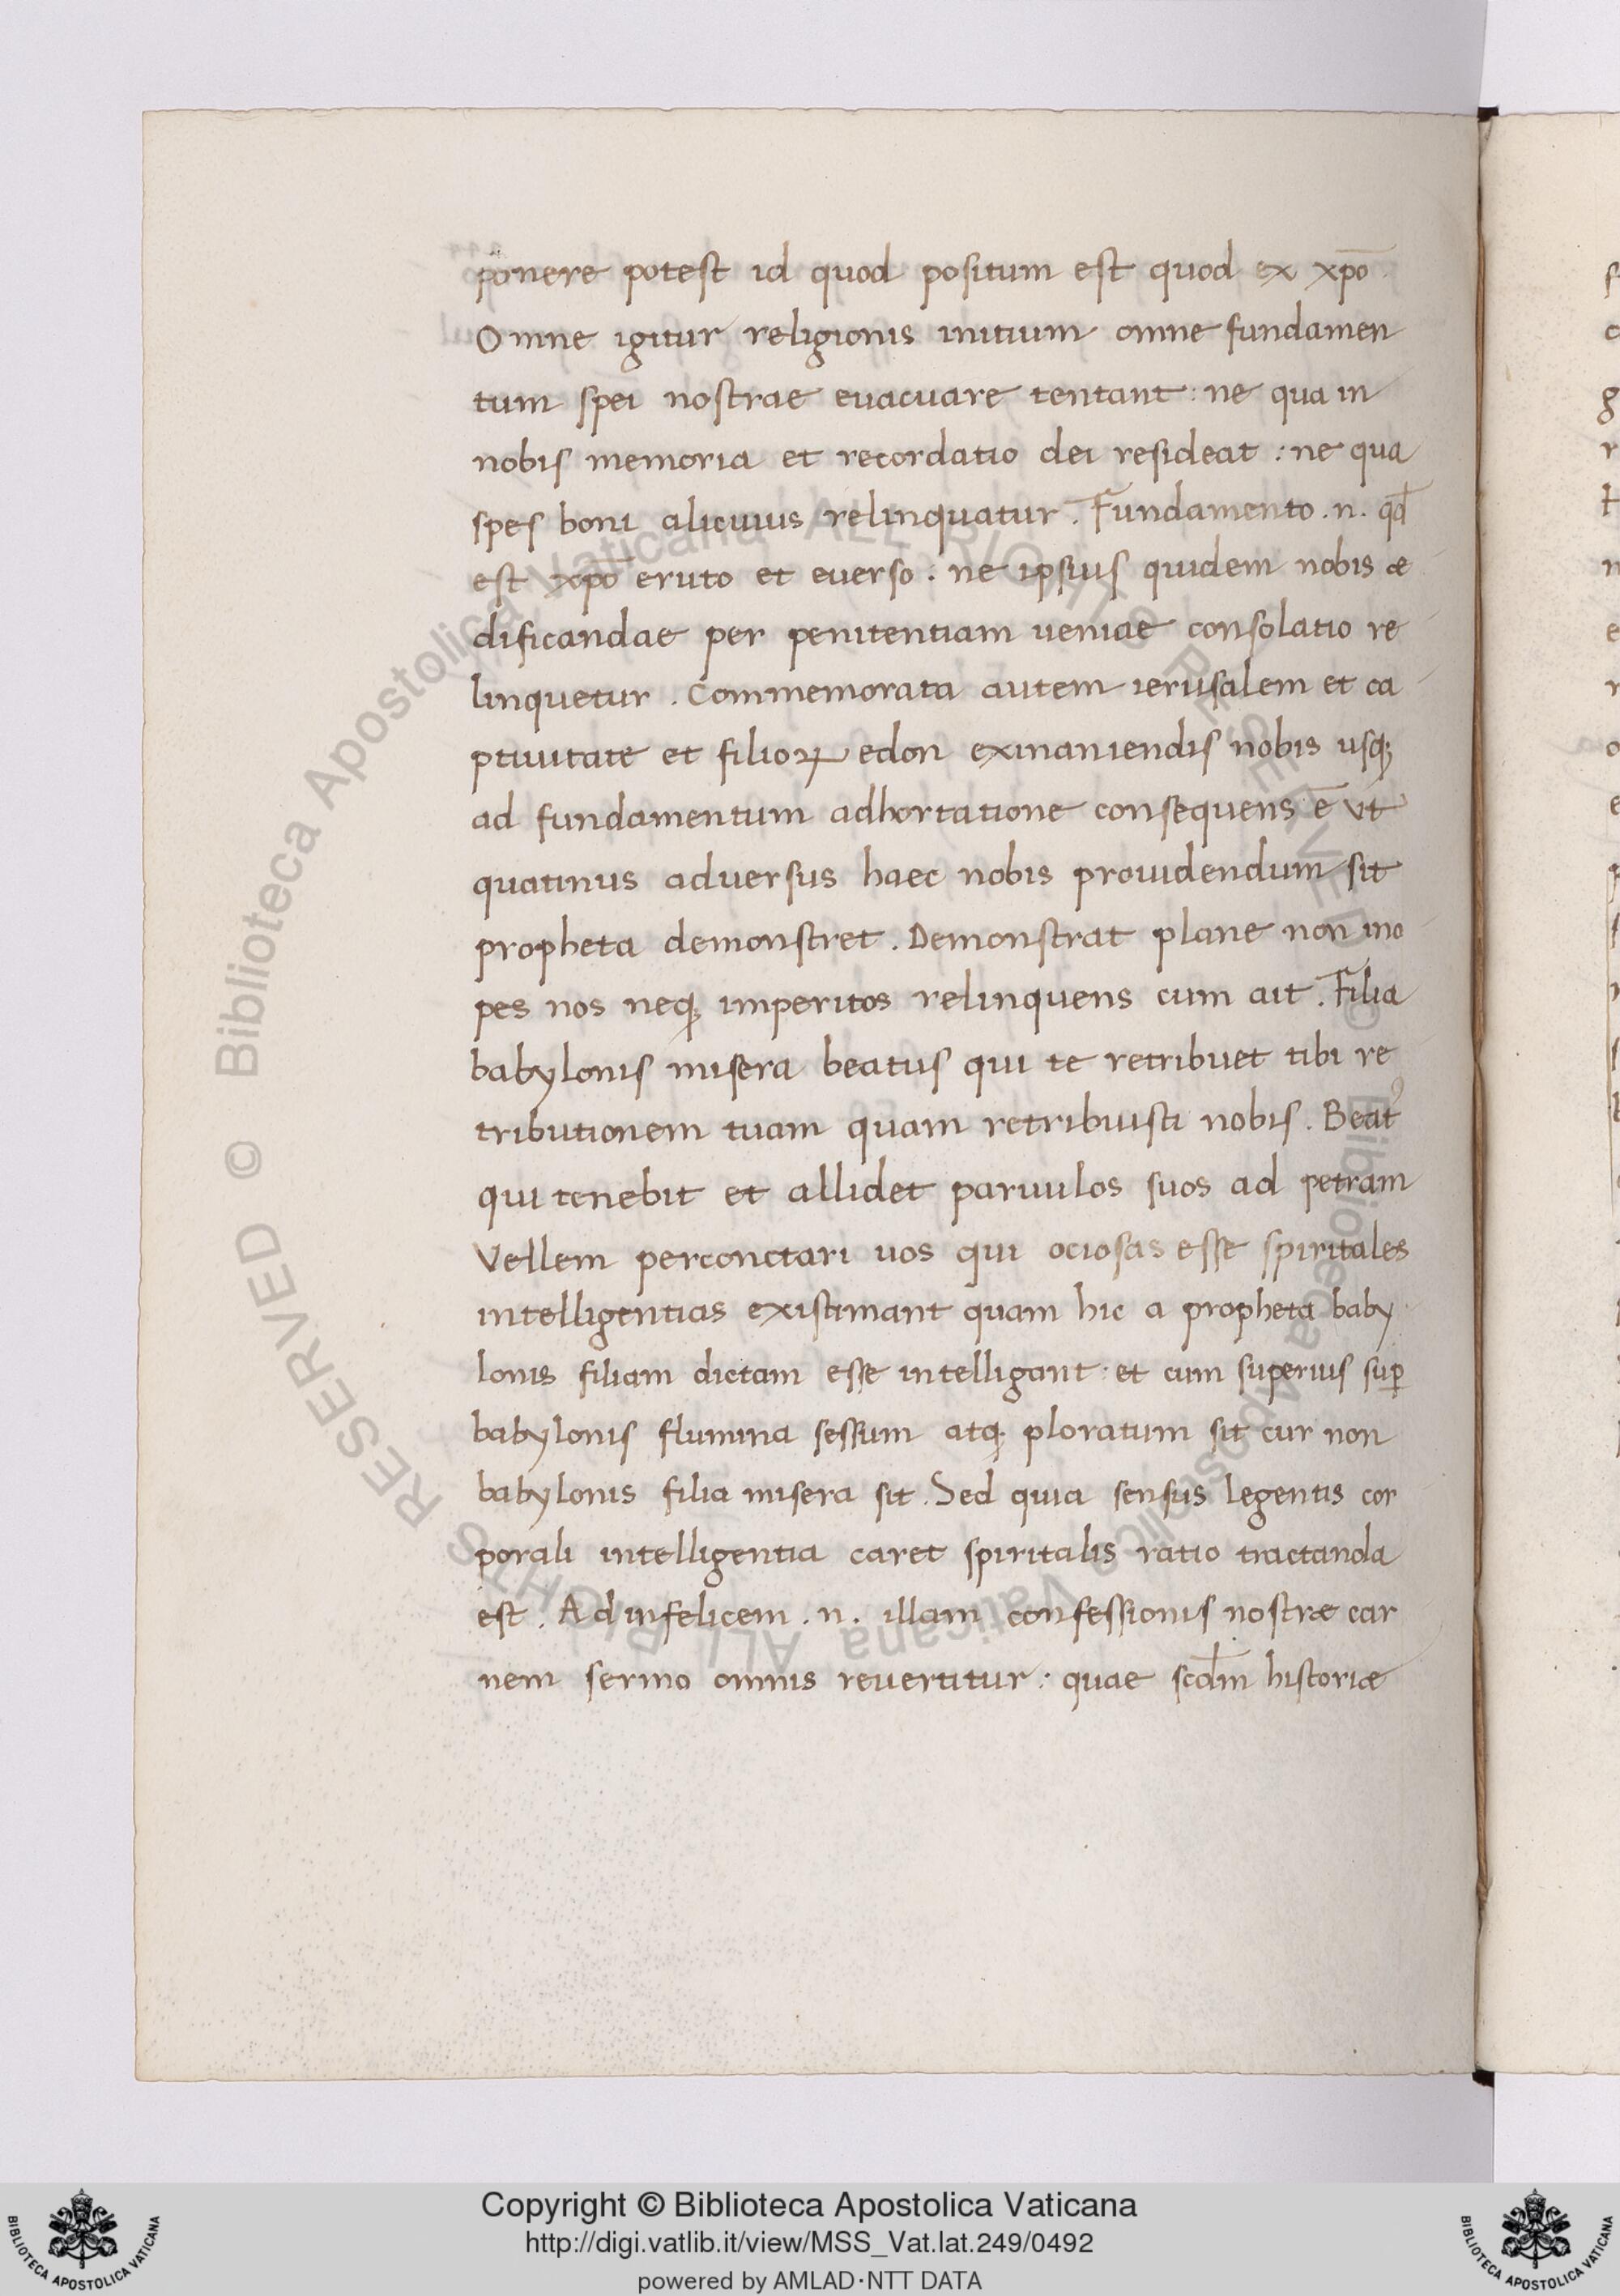 ponere potest id quod positum est quod ex xp̄o.
Omne igitur religionis initium omne fundamen
tum spei nostrae euacuare tentant: ne qua in
nobis memoria et recordatio dei resideat: ne qua
spes boni alicuius relinquatur. Fundamento .n. qđ
est xp̄o eruto et euerso: ne ipsius quidem nobis æ
dificandae per penitentiam ueniae consolatio re
linquetur. Commemorata autem ierusalem et ca
ptiuitate et filioꝝ edon exinaniendis nobis usqꝫ
ad fundamentum adhortatione consequens ē ut
quatinus aduersus haec nobis prouidendum sit
propheta demonstret. Demonstrat plane non ino
pes nos neqꝫ imperitos relinquens cum ait. Filia
babylonis misera beatus qui te retribuet tibi re
tributionem tuam quam retribuisti nobis. Beatꝰ
qui tenebit et allidet paruulos suos ad petram
Vellem perconctari uos qui ociosas esse spiritales
intelligentias existimant quam hic a propheta baby
lonis filiam dictam esse intelligant: et cum superius suꝑ
babylonis flumina sessum atqꝫ ploratum sit cur non
babylonis filia misera sit. Sed quia sensus legentis cor
porali intelligentia caret spiritalis ratio tractanda
est. Ad infelicem .n. illam confessionis nostræ car
nem sermo omnis reuertitur: quae scđm historiæ
Copyright © Biblioteca Apostolica Vaticana
http://digi.vatlib.it/view/MSS_Vat.lat.249/0492
powered by AMLAD·NTT DATA
BIBLIOTECA APOSTOLICA VATICANA
BIBLIOTECA APOSTOLICA VATICANA
© Biblioteca Apostolica Vaticana ALL RIGHTS RESERVED © Biblioteca Apostolica Vaticana ALL RIGHTS RESERVED